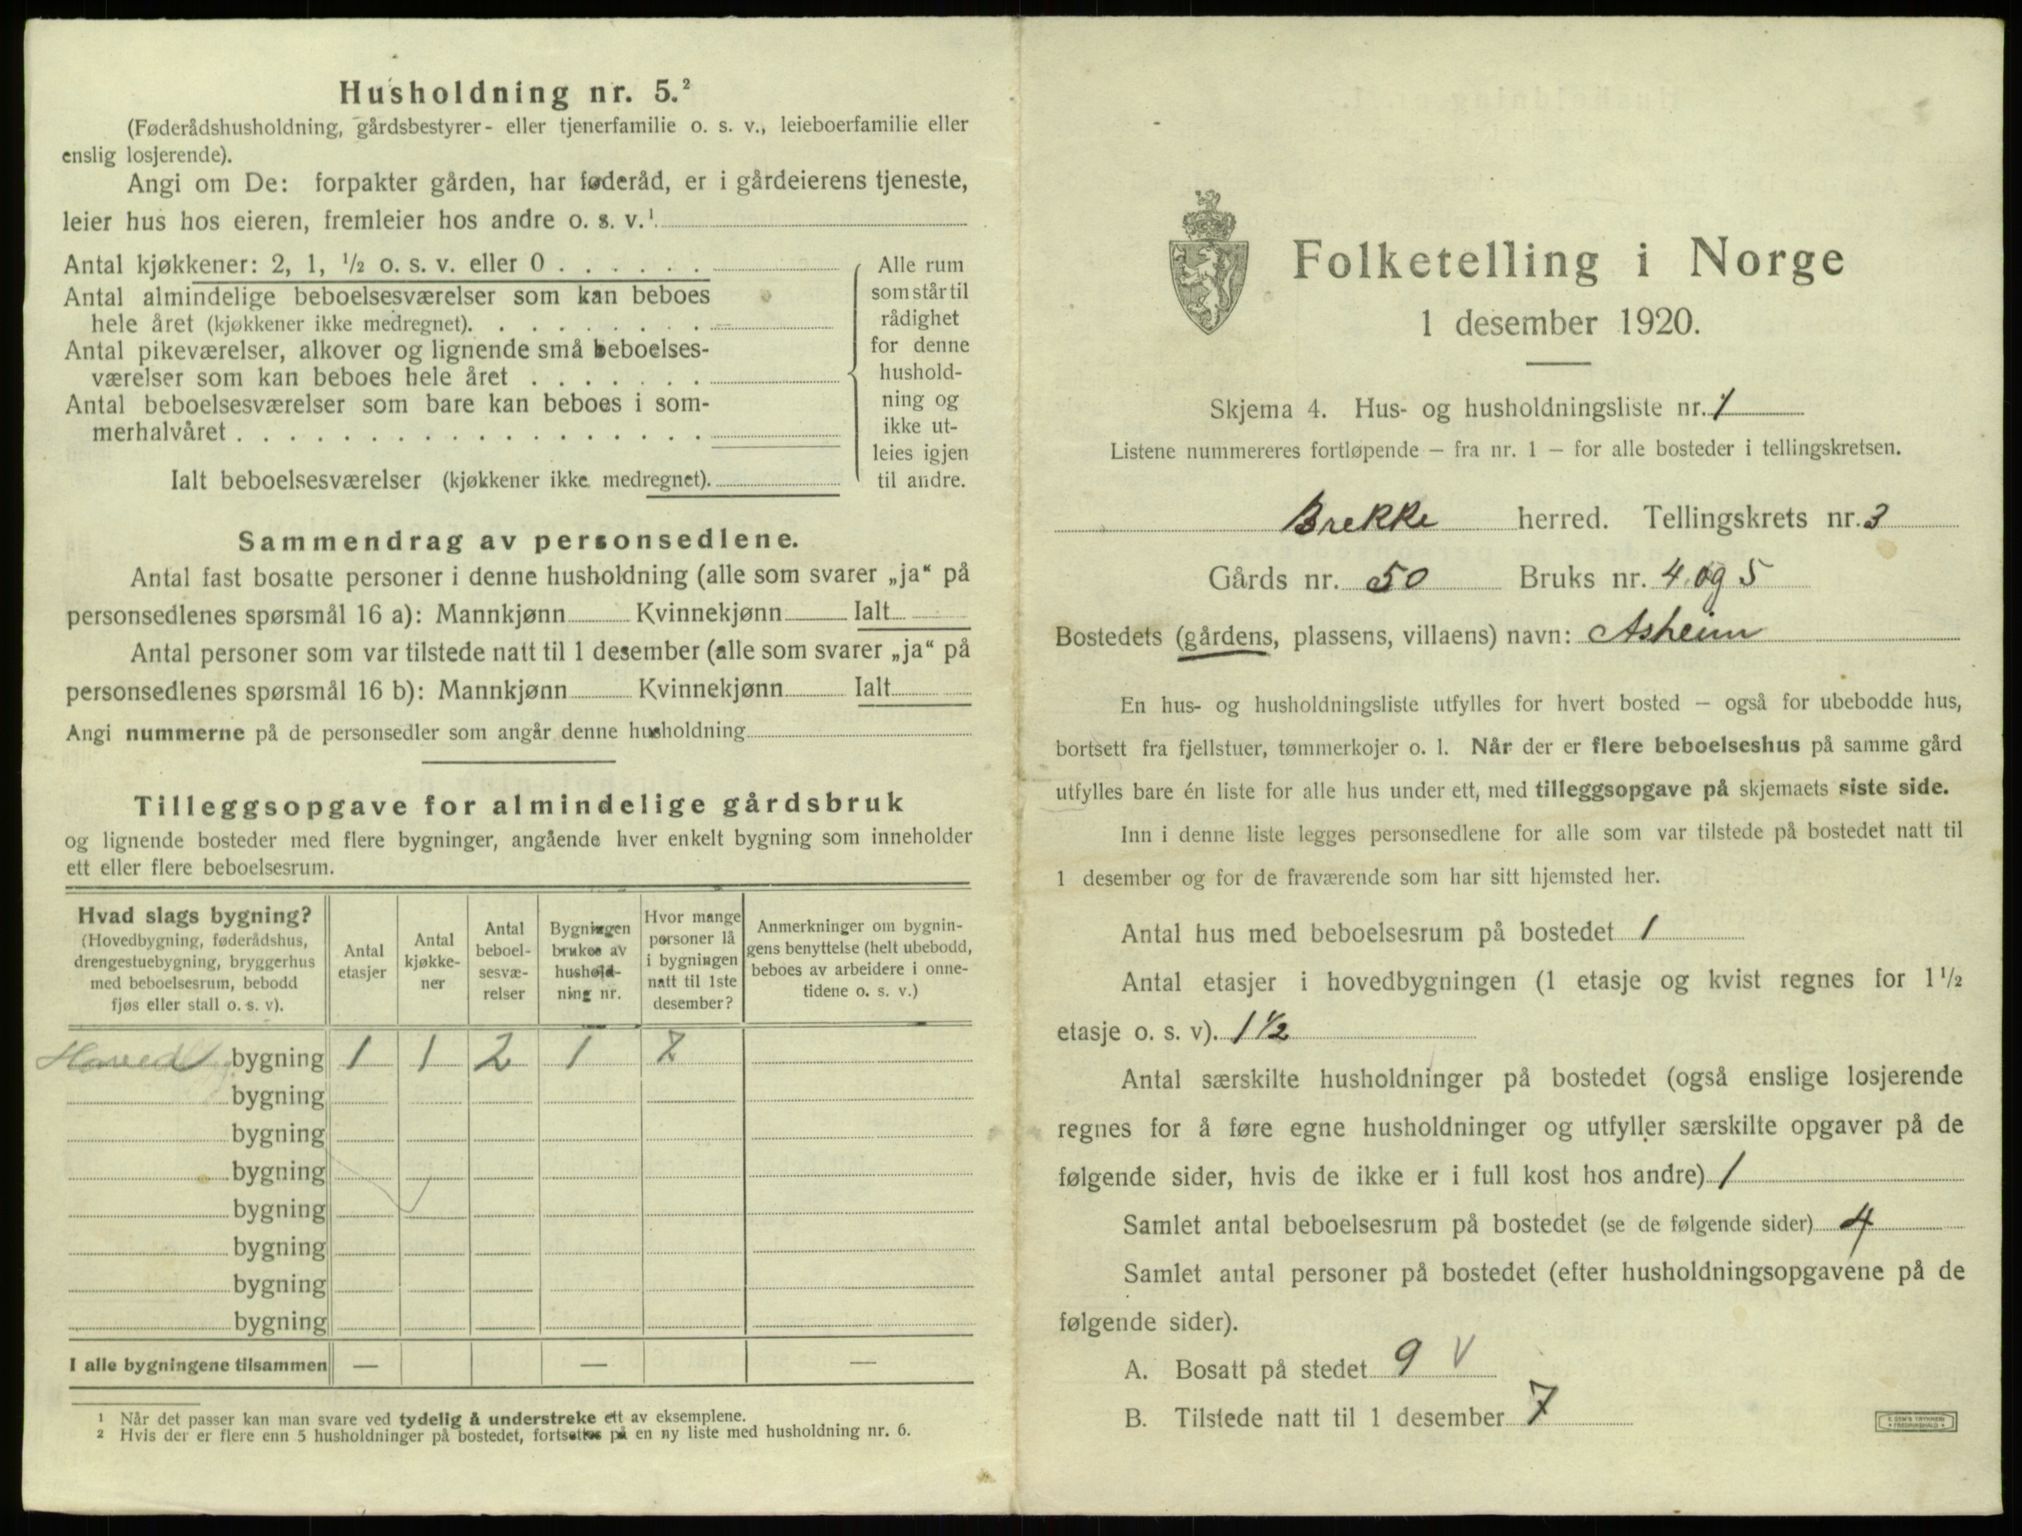 Husholdning nr. 5.²
(Føderådshusholdning, gårdsbestyrer- eller tjenerfamilie o. s. v., leieboerfamilie eller
enslig losjerende).
Angi om De: forpakter gården, har føderåd, er i gårdeierens tjeneste,
leier hus hos eieren, fremleier hos andre o. s. v.¹
Antal kjøkkener: 2, 1, ½ o. s. v. eller 0 . . . . . .
Antal almindelige beboelsesværelser som kan beboes
hele året (kjøkkener ikke medregnet). . . . . . . . .
Antal pikeværelser, alkover og lignende små beboelses-
værelser som kan beboes hele året . . . . . . .
Antal beboelsesværelser som bare kan beboes i som-
merhalvåret . . . . . . . . . . . . . . . . . .
Ialt beboelsesværelser (kjøkkener ikke medregnet).
Alle rum
som står til
rådighet
for denne
hushold-
ning og
ikke ut-
leies igjen
til andre.
Sammendrag av personsedlene.
Antal fast bosatte personer i denne husholdning (alle som svarer „ja“ på
personsedlenes spørsmål 16 a): Mannkjønn Kvinnekjønn Ialt
Antal personer som var tilstede natt til 1 desember (alle som svarer „ja“ på
personsedlenes spørsmål 16 b): Mannkjønn Kvinnekjønn Ialt
Angi nummerne på de personsedler som angår denne husholdning
Tilleggsopgave for almindelige gårdsbruk
og lignende bosteder med flere bygninger, angående hver enkelt bygning som inneholder
ett eller flere beboelsesrum.
Hvad slags bygning?
(Hovedbygning, føderådshus,
drengestuebygning, bryggerhus
med beboelsesrum, bebodd
fjøs eller stall o. s. v).
Antal
etasjer
Antal
kjøkke-
ner
Antal
beboel-
sesvæ-
relser
Bygningen
brukes av
hushold-
ning nr.
Hvor mange
personer lå
i bygningen
natt til 1ste
desember?
Anmerkninger om bygnin-
gens benyttelse (helt ubebodd,
beboes av arbeidere i onne-
tidene o. s. v.)
Hoved bygning 1 1 2 1 7
bygning
bygning
bygning
bygning
bygning
bygning
bygning
I alle bygningene tilsammen — — —
¹ Når det passer kan man svare ved tydelig å understreke ett av eksemplene.
² Hvis der er flere enn 5 husholdninger på bostedet, fortsettes på en ny liste med husholdning nr. 6.
Folketelling i Norge
1 desember 1920.
Skjema 4. Hus- og husholdningsliste nr. 1
Listene nummereres fortløpende — fra nr. 1 — for alle bosteder i tellingskretsen.
Brekke herred. Tellingskrets nr. 3
Gårds nr. 50 Bruks nr. 4 og 5
Bostedets (gårdens, plassens, villaens) navn: Asheim
En hus- og husholdningsliste utfylles for hvert bosted — også for ubebodde hus,
bortsett fra fjellstuer, tømmerkojer o. l. Når der er flere beboelseshus på samme gård
utfylles bare én liste for alle hus under ett, med tilleggsopgave på skjemaets siste side.
Inn i denne liste legges personsedlene for alle som var tilstede på bostedet natt til
1 desember og for de fraværende som har sitt hjemsted her.
Antal hus med beboelsesrum på bostedet 1
Antal etasjer i hovedbygningen (1 etasje og kvist regnes for 1½
etasje o. s. v). 1½
Antal særskilte husholdninger på bostedet (også enslige losjerende
regnes for å føre egne husholdninger og utfyller særskilte opgaver på de
følgende sider, hvis de ikke er i full kost hos andre) 1
Samlet antal beboelsesrum på bostedet (se de følgende sider) 4
Samlet antal personer på bostedet (efter husholdningsopgavene på de
følgende sider).
A. Bosatt på stedet 9 V
B. Tilstede natt til 1 desember 7